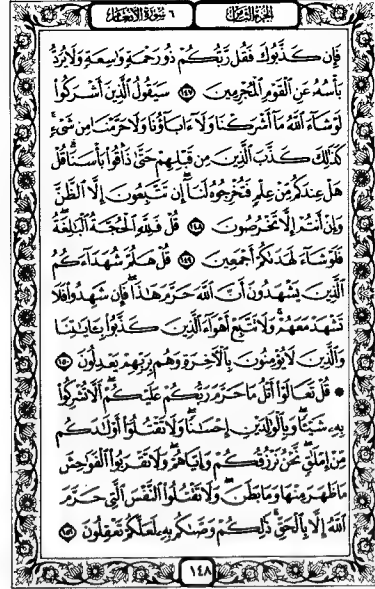 الجزء الثامن
٦ سورة الأنعام
فَإِن كَذَّبُوكَ فَقُل رَّبُّكُمْ ذُو رَحْمَةٍ وَاسِعَةٍ وَلَا يُرَدُّ
بَأْسُهُ عَنِ الْقَوْمِ الْمُجْرِمِينَ ١٤٧ سَيَقُولُ الَّذِينَ أَشْرَكُوا
لَوْ شَاءَ اللَّهُ مَا أَشْرَكْنَا وَلَا ءَابَاؤُنَا وَلَا حَرَّمْنَا مِن شَيْءٍ
كَذَٰلِكَ كَذَّبَ الَّذِينَ مِن قَبْلِهِمْ حَتَّىٰ ذَاقُوا بَأْسَنَا قُلْ
هَلْ عِندَكُم مِّنْ عِلْمٍ فَتُخْرِجُوهُ لَنَا إِن تَتَّبِعُونَ إِلَّا الظَّنَّ
وَإِنْ أَنتُمْ إِلَّا تَخْرُصُونَ ١٤٨ قُلْ فَلِلَّهِ الْحُجَّةُ الْبَالِغَةُ
فَلَوْ شَاءَ لَهَدَىٰكُمْ أَجْمَعِينَ ١٤٩ قُلْ هَلُمَّ شُهَدَاءَكُمُ
الَّذِينَ يَشْهَدُونَ أَنَّ اللَّهَ حَرَّمَ هَٰذَا فَإِن شَهِدُوا فَلَا
تَشْهَدْ مَعَهُمْ وَلَا تَتَّبِعْ أَهْوَاءَ الَّذِينَ كَذَّبُوا بِـَٔايَٰتِنَا
وَالَّذِينَ لَا يُؤْمِنُونَ بِالْءَاخِرَةِ وَهُم بِرَبِّهِمْ يَعْدِلُونَ ١٥٠
* قُلْ تَعَالَوْا أَتْلُ مَا حَرَّمَ رَبُّكُمْ عَلَيْكُمْ أَلَّا تُشْرِكُوا
بِهِ شَيْـًٔا وَبِالْوَٰلِدَيْنِ إِحْسَٰنًا وَلَا تَقْتُلُوا أَوْلَٰدَكُم
مِّنْ إِمْلَٰقٍ نَّحْنُ نَرْزُقُكُمْ وَإِيَّاهُمْ وَلَا تَقْرَبُوا الْفَوَٰحِشَ
مَا ظَهَرَ مِنْهَا وَمَا بَطَنَ وَلَا تَقْتُلُوا النَّفْسَ الَّتِي حَرَّمَ
اللَّهُ إِلَّا بِالْحَقِّ ذَٰلِكُمْ وَصَّىٰكُم بِهِ لَعَلَّكُمْ تَعْقِلُونَ ١٥١
١٤٨